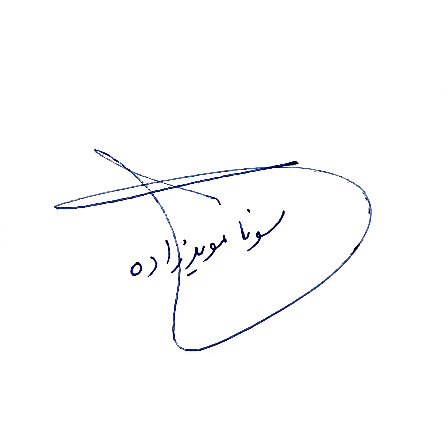 سونا مویدزاده